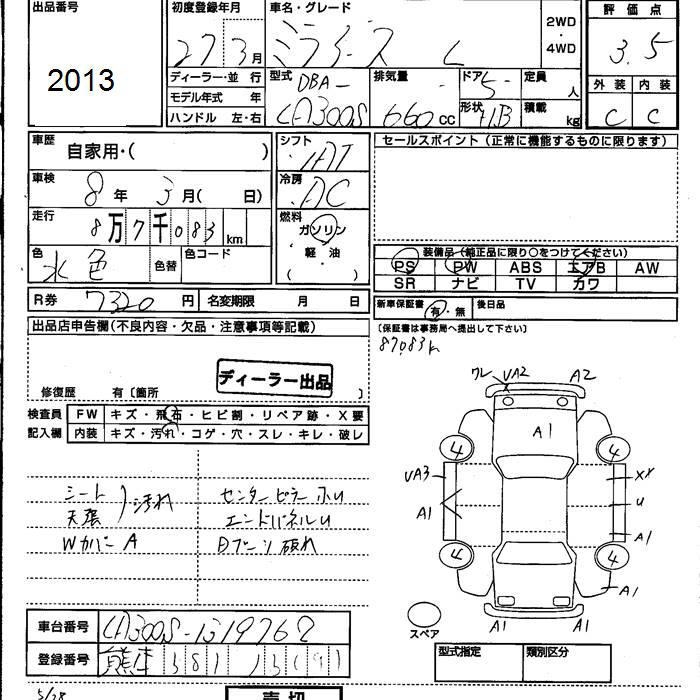 出品番号
2013
初度登録年月
27 3月
ディーラー・並 行
モデル年式 年
ハンドル 左・右
車名・グレード
ミライース L
2WD
・
4WD
型式
DBA-
LA300S
排気量
660cc
ドア
5
形状
HB
定員
人
積載
kg
評 価 点
3.5
外 装 内 装
C C
車歴
自家用・( )
車検
8年 3月( 日)
走行
8万7千083km
色
水色
色替
色コード
シフト
IAT
冷房
AC
燃料
ガソリン
・
軽 油
( )
セールスポイント (正常に機能するものに限ります)
装備品 (純正品に限り○をつけてください)
PS PW ABS エアB AW
SR ナビ TV カワ
R券 7320円 名変期限 月 日
新車保証書 有・無 後日品
(保証書は事務局へ提出して下さい)
87083k
出品店申告欄(不良内容・欠品・注意事項等記載)
ディーラー出品
修復歴 有〔箇所 〕
検査員
記入欄
FW キズ・飛石・ヒビ割・リペア跡・X要
内装 キズ・汚れ・コゲ・穴・スレ・キレ・破レ
シート
天張
)汚れ
Wカバー A
センターピラー小U
エンドパネルU
Dブーツ破れ
ワレ
VA2
A2
A1
4
4
VA3
A1
XX
U
A1
4
4
A1
A1
A1
スペア
車台番号 LA300S-1319762
登録番号 熊本 581
型式指定 類別区分
5/28
売 切